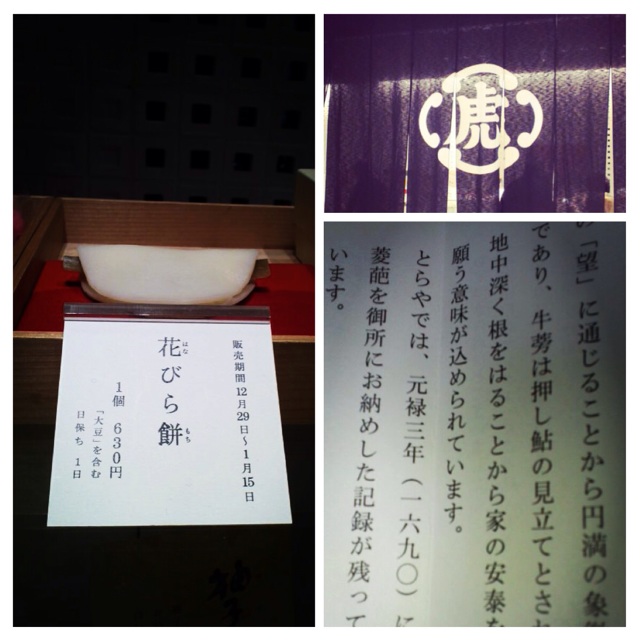 販売期間12月29日〜1月15日
花びら餅
はな
もち
1個 630円
「大豆」を含む
日保ち 1日
虎
の「望」に通じることから円満の象
であり、牛蒡は押し鮎の見立てとされ
地中深く根をはることから家の安泰を
願う意味が込められています。
とらやでは、元禄三年(一六九〇)に
菱葩を御所にお納めした記録が残って
います。